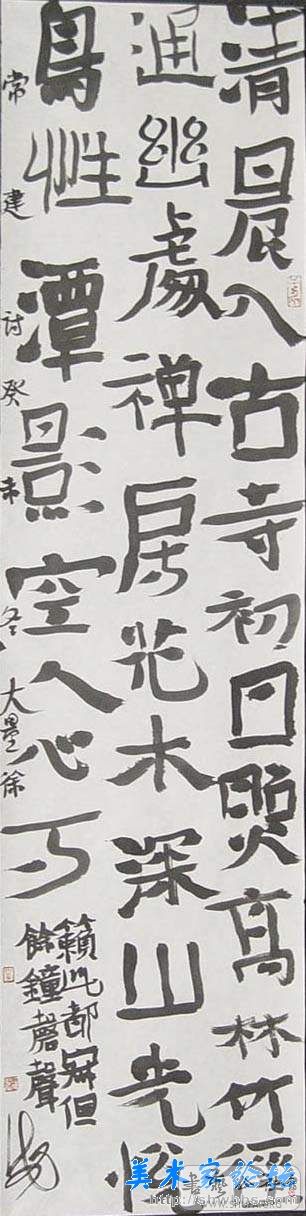 清晨入古寺初日照高林竹徑
通幽處禅房花木深山光悦
鳥性潭影空人心万
籟此都寂但
餘鐘磬聲
常建诗癸未冬大墨徐
美术家论坛